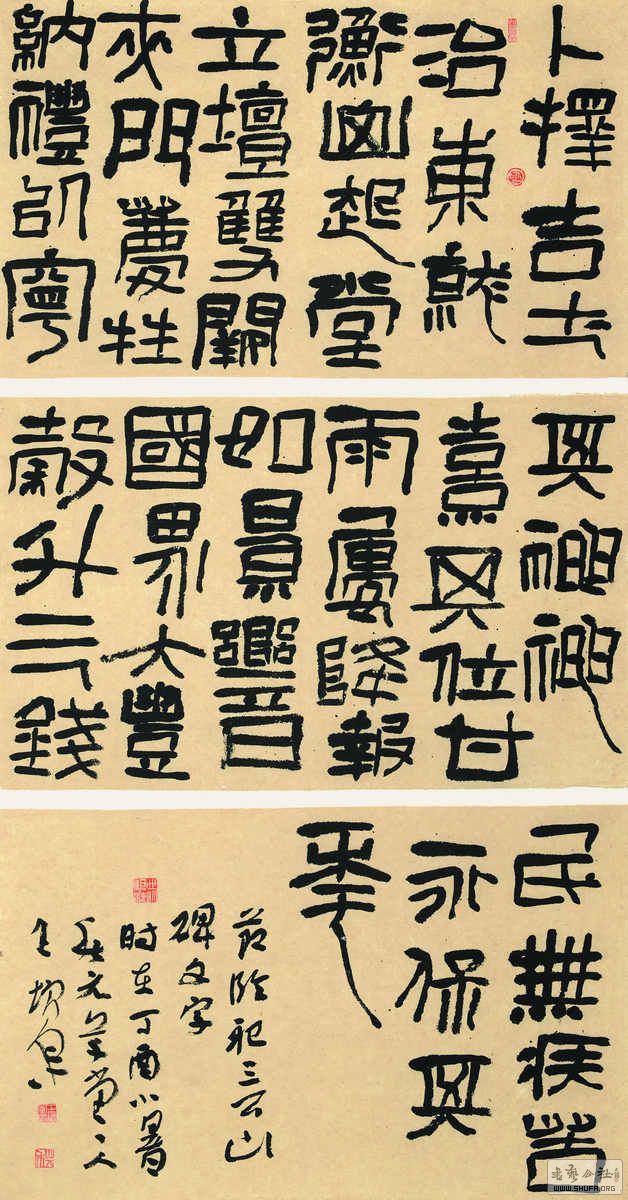 卜擇吉土
治東就
衡山起堂
立壇雙闕
夾門薦牲
納禮以寧
其神神
熹其位甘
雨屢降報
如景響
國界大豐
穀斗三錢
民無疾苦
永保其
年
節臨祀三公山
碑文字
时在丁酉小暑
书艺公社
WWW.SHUFA.ORG